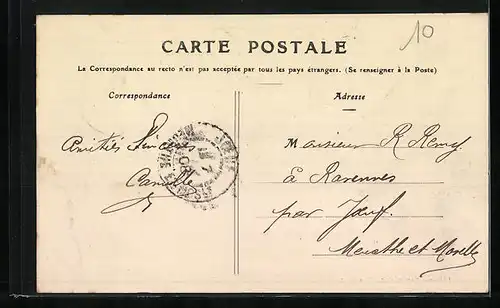 10
CARTE POSTALE
La Correspondance au recto n'est pas acceptée par tous les pays étrangers. (Se renseigner à la Poste)
Correspondance
Adresse
Amitiés Sincères
Camille
Monsieur R Remy
à Ravennes
par Jœuf.
Meurthe et Moselle